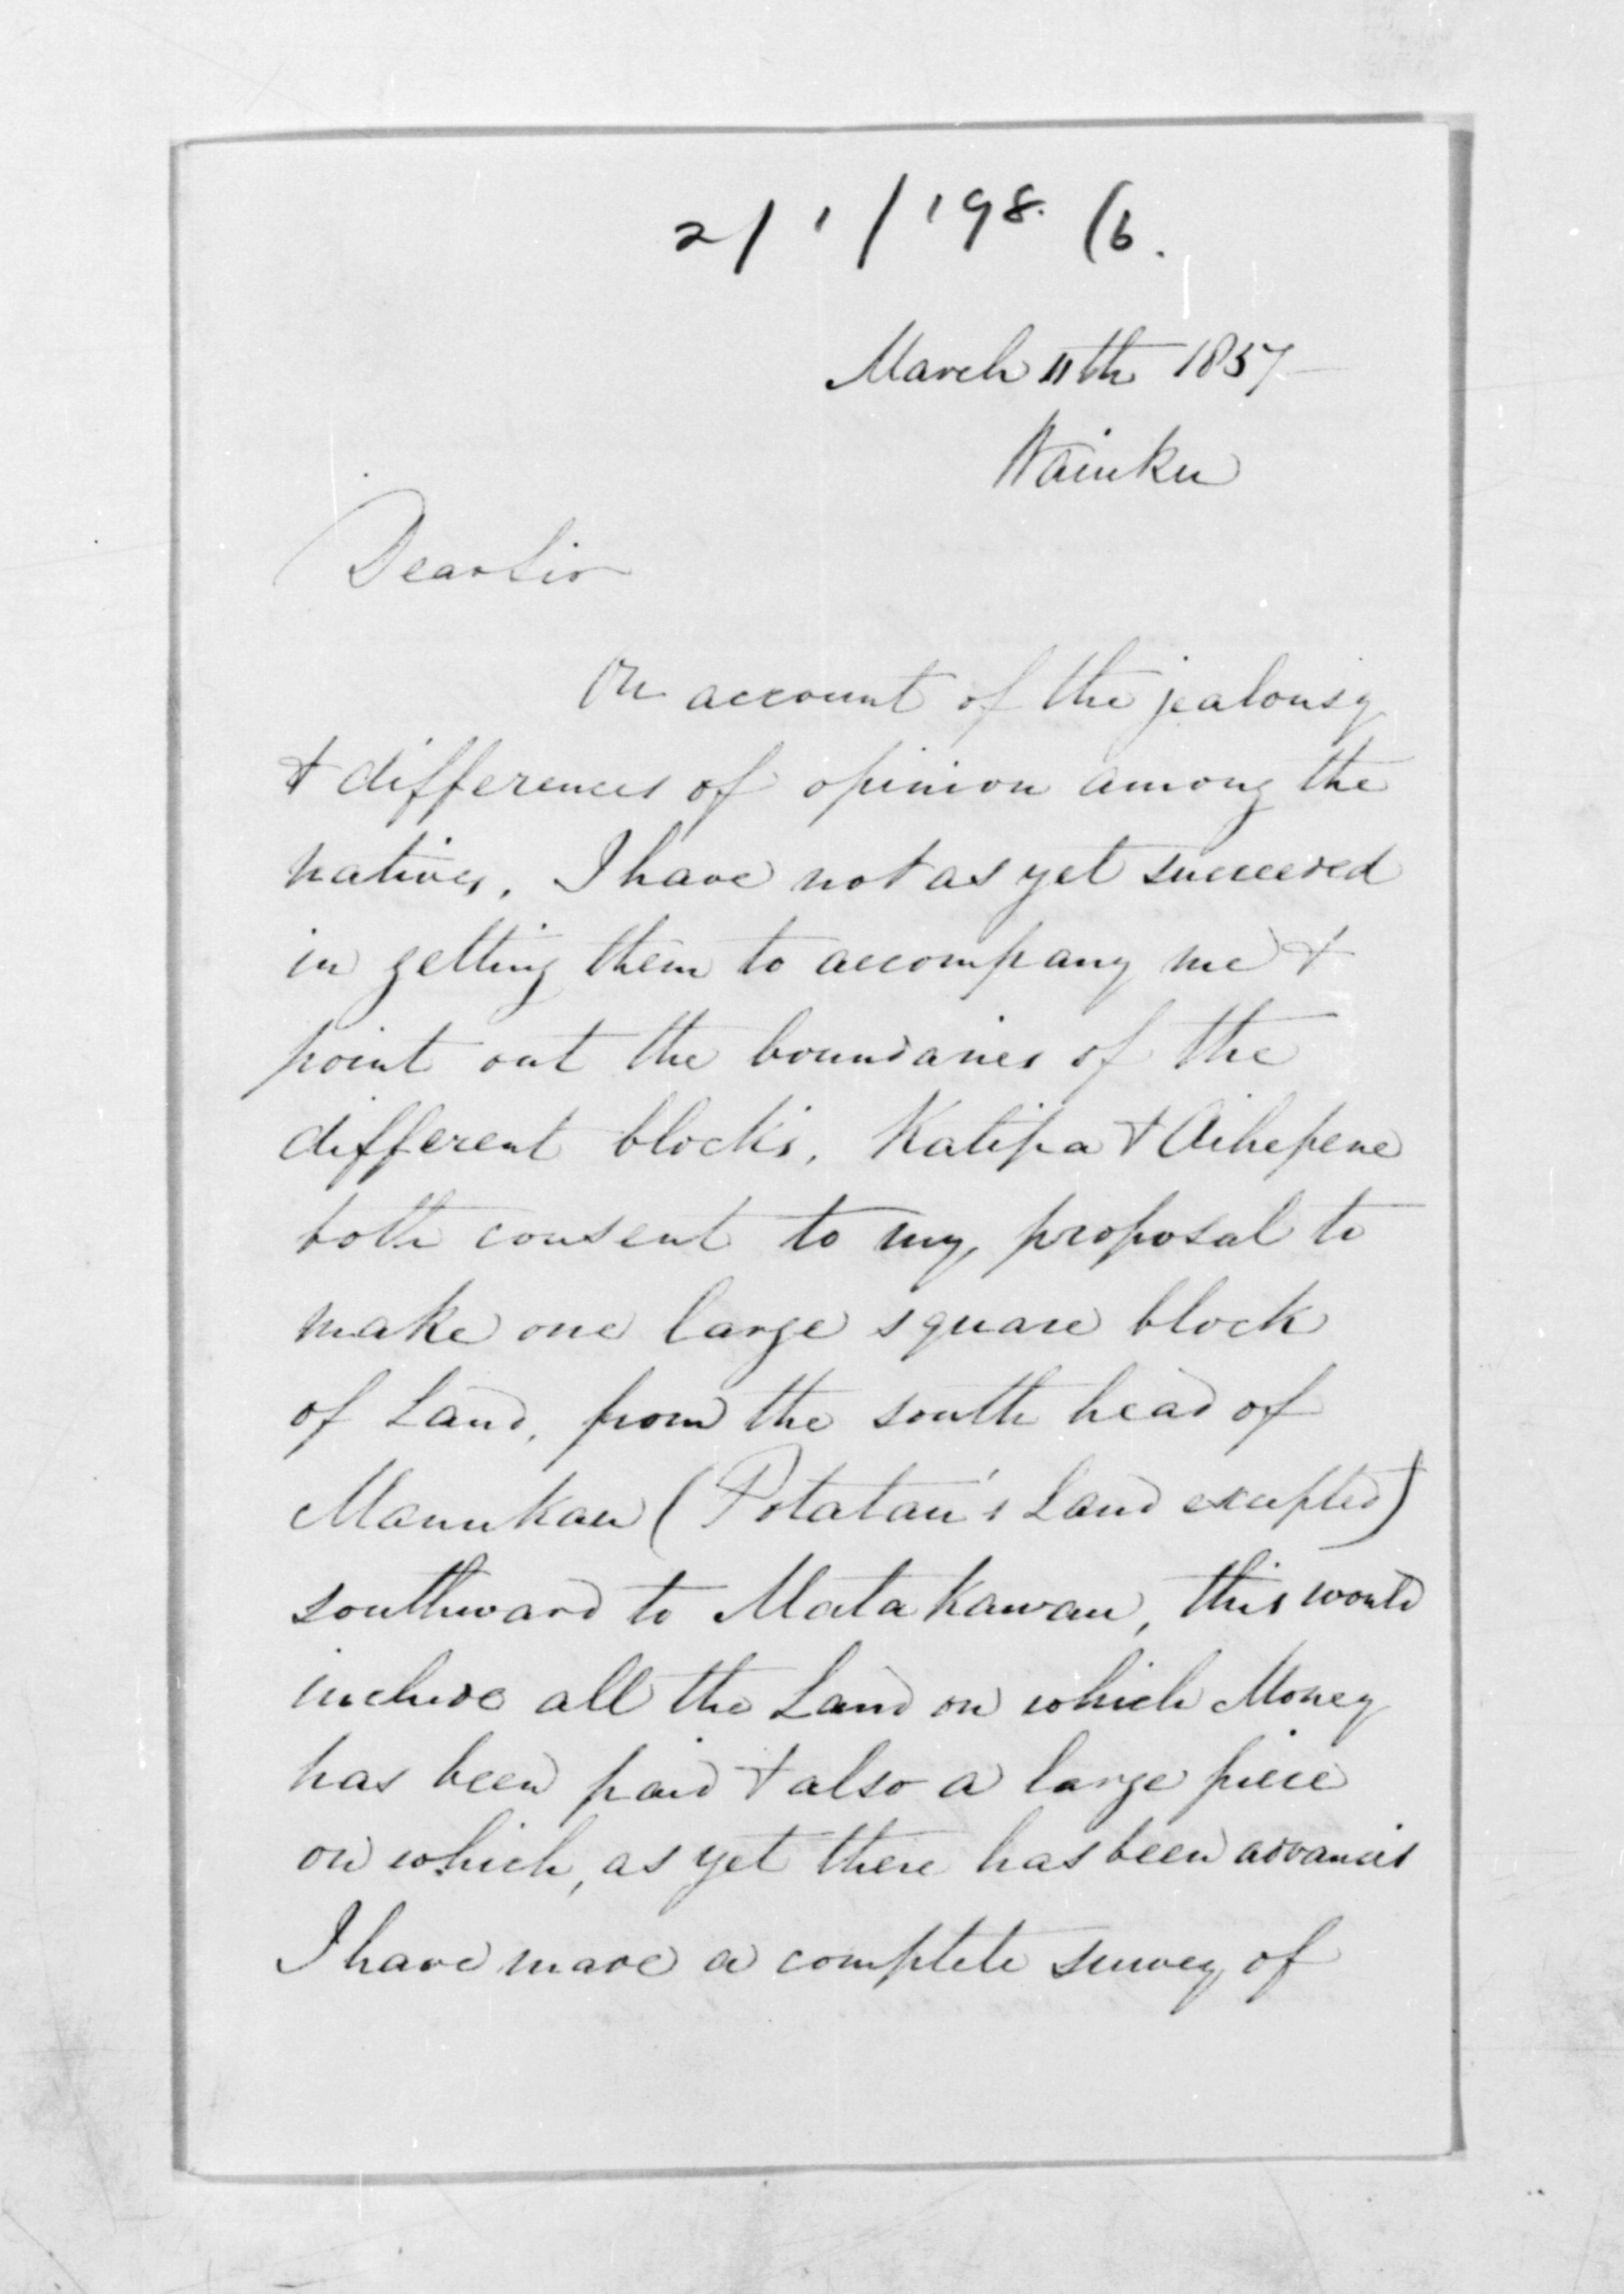 2/1/198. (6.
March 11th 1857
Waiuku
Dear Sir
On account of the jealousy
& differences of opinion among the
natives, I have not as yet succeeded
in getting them to accompany me &
point out the boundaries of the
different blocks, Katipa & Aihepene
both consent to my proposal to
make one large square block
of Land, from the south head of
Manukau (Potatau's Land excepted)
southward to Mata Kawau, this would
include all the Land on which Money
has been paid & also a large piece
on which, as yet there has been advances
I have made a complete survey of